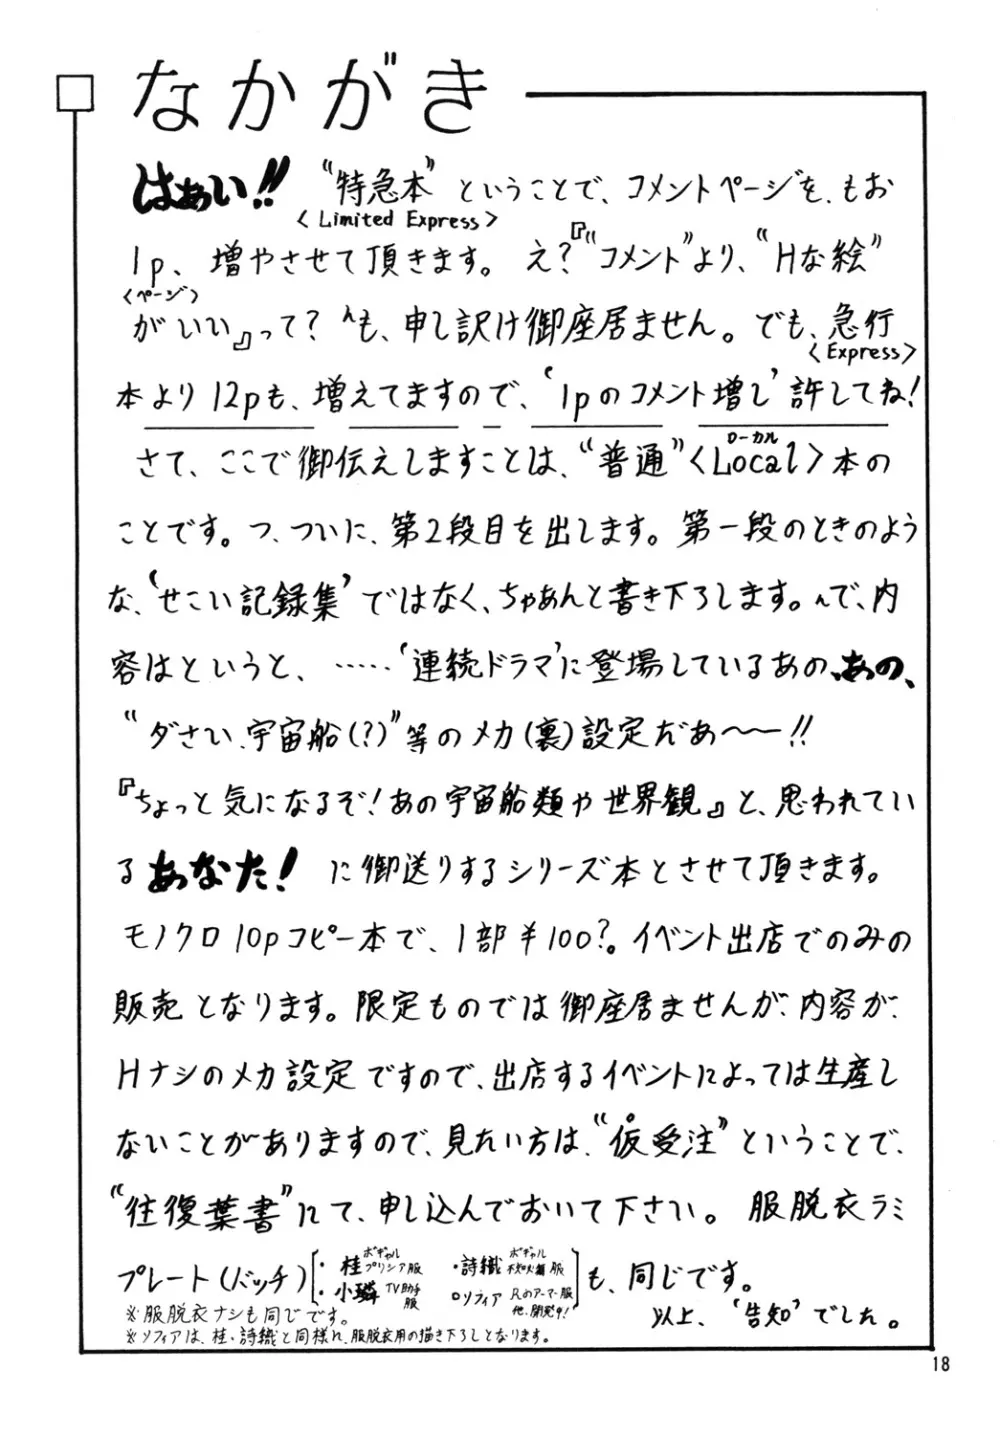 なかがき
はぁい!! “特急本” ということで、コメントページを、もお
〈Limited Express〉
1p、増やさせて頂きます。 え?『“コメント”より、“Hな絵”
〈ページ〉
がいい』って? へも、申し訳け御座居ません。でも、急行
〈Express〉
本より12pも、増えてますので、‘1pのコメント増し’許してね!
さて、ここで御伝えしますことは、“普通”〈Local〉本の
ローカル
ことです。つ、ついに、第2段目を出します。第一段のときのよう
な、‘せこい記録集’ではなく、ちゃあんと書き下ろします。んで、内
容はというと、……‘連続ドラマ’に登場しているあの、あの、
“ダさい、宇宙船(?)”等のメカ(裏)設定だあ〜〜!!
『ちょっと気になるぞ!あの宇宙船類や世界観』と、思われてい
るあなた! に御送りするシリーズ本とさせて頂きます。
モノクロ10pコピー本で、1部¥100?。イベント出店でのみの
販売となります。限定ものでは御座居ませんが、内容が、
Hナシのメカ設定ですので、出店するイベントによっては生産し
ないことがありますので、見たい方は、“仮受注”ということで、
“往復葉書”にて、申し込んでおいて下さい。 服脱衣ラミ
プレート(バッチ)
・桂 ボギャル プリシア服
・詩織 ボギャル 服
・小璘 TV助手服
○ソフィア Rのアーマー服 他、開発中!
も、同じです。
※服脱衣ナシも同じです。
以上、‘告知’でした。
※ソフィアは、桂・詩織と同様に、服脱衣用の描き下ろしとなります。
18